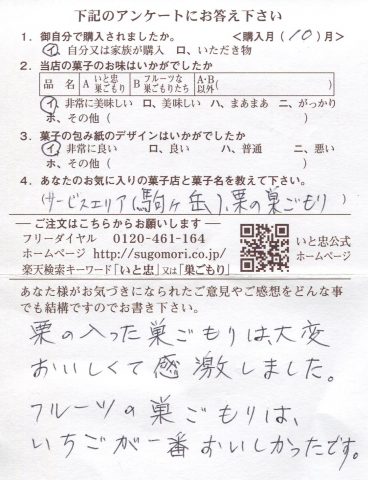 下記のアンケートにお答え下さい
1. 御自分で購入されましたか。　＜購入月（10）月＞
イ、自分又は家族が購入　ロ、いただき物
2. 当店の菓子のお味はいかがでしたか
品　名　A　いと忠巣ごもり　B　フルーツな巣ごもりたち　A・B以外（　　　）
イ、非常に美味しい　ロ、美味しい　ハ、まあまあ　ニ、がっかり
ホ、その他（　　　）
3. 菓子の包み紙のデザインはいかがでしたか
イ、非常に良い　ロ、良い　ハ、普通　ニ、悪い
ホ、その他（　　　）
4. あなたのお気に入りの菓子店と菓子名を教えて下さい。
（サービスエリア（駒ヶ岳）、栗の巣ごもり）
―ご注文はこちらからお願いします―
フリーダイヤル　0120-461-164
ホームページ　http://sugomori.co.jp/
楽天検索キーワード「いと忠」又は「巣ごもり」
いと忠公式
ホームページ
あなた様がお気づきになられたご意見やご感想をどんな事
でも結構ですのでお書き下さい。
栗の入った巣ごもりは大変
おいしくて感激しました。
フルーツの巣ごもりは、
いちごが一番おいしかったです。